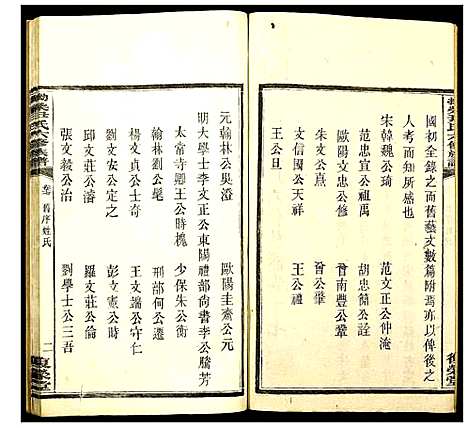 國初全錄之而舊藝文數篇附焉亦以俾後之
人考而知所感也
宋韓魏公琦 范文正公仲淹
范忠宣公祖禹 胡忠簡公詮
歐陽文忠公修 曾南豐公鞏
朱文公熹 曾公肇
文信國公天祥 王公禮
王公旦
復榮堂
元翰林吳公澄 歐陽圭齋公元
明大學士李文正公東陽 禮部尚書李公騰芳
太常寺卿王公時槐 少保朱公衡
翰林劉公髦 刑部何公遷
楊文貞公士奇 王文端公守仁
劉文安公定之 彭文憲公時
邱文莊公濬 羅文莊公倫
張文毅公治 劉學士公三吾
氏六修族譜 卷 舊序姓氏 二 復榮堂